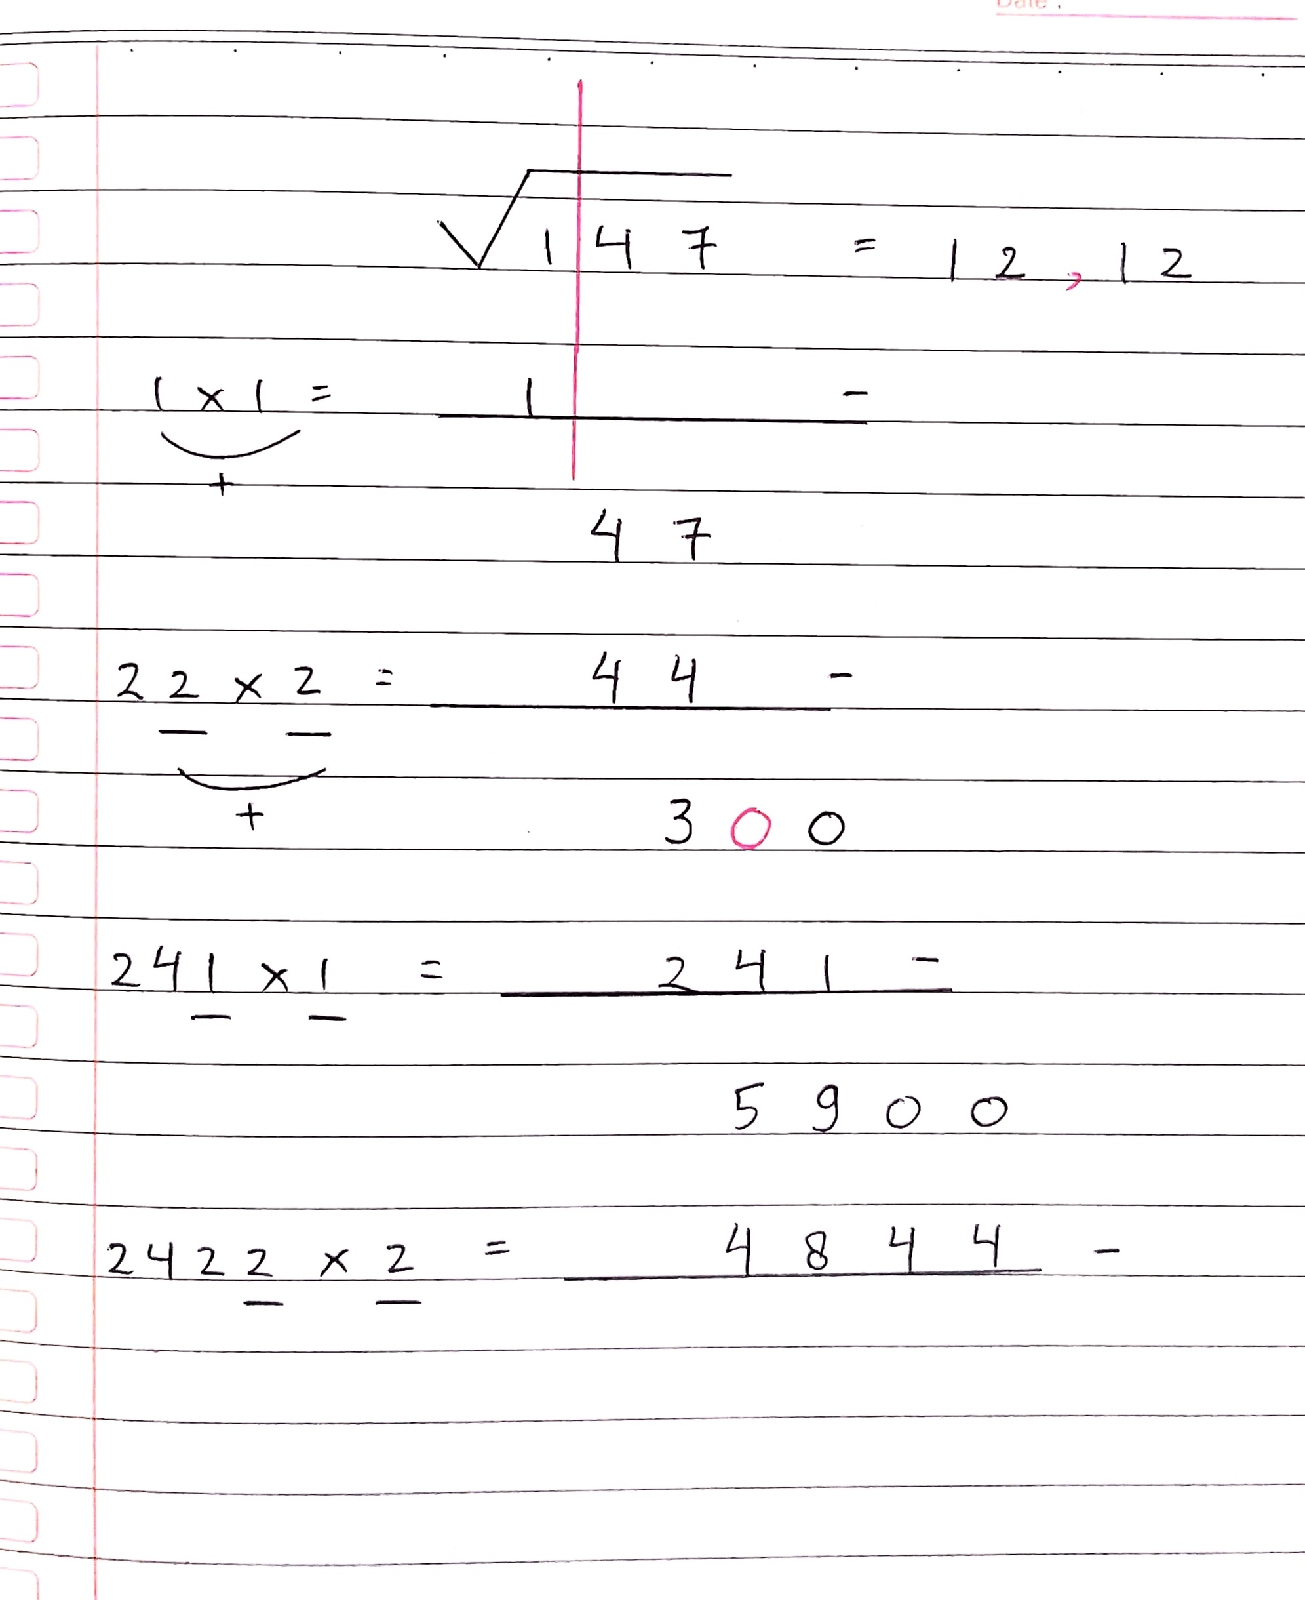 Date :
√147 = 12,12
1 x 1 = 1 -
+
47
22 x 2 = 44 -
+
300
241 x 1 = 241 -
5900
2422 x 2 = 4844 -